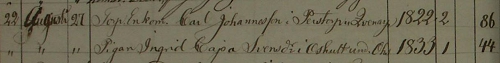 22 Augusti 27 Enkom. Carl Johannesson i 1822 2 86
" " " Pigan Ingrid Cajsa Svensdr i 1833 1 44